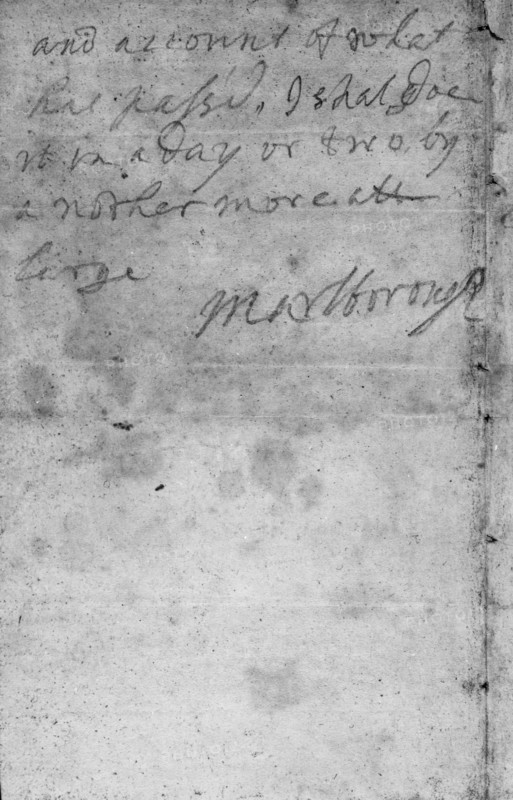 and account of what
has pass'd, I shal doe
it in a day or two by
a nother more att
large
Marlborough